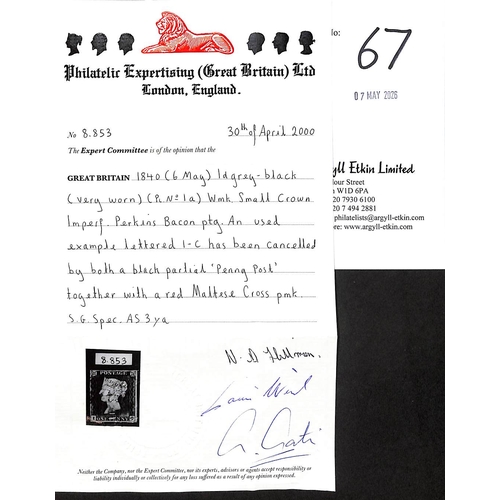 Philatelic Expertising (Great Britain) Ltd
London, England.
No 8.853
30th of April 2000
The Expert Committee is of the opinion that the
GREAT BRITAIN 1840 (6 May) 1d grey-black
(very worn) (Pl. No 1a) Wmk Small Crown
Imperf. Perkins Bacon ptg. An used
example lettered I-C has been cancelled
by both a black partial 'Penny Post'
together with a red Maltese Cross pmk.
S.G. Spec. AS3ya
8.853
POSTAGE
Neither the Company, nor the Expert Committee, nor its experts, advisors or agents accept responsibility or
liability individually or collectively for any loss suffered as a result of any opinion expressed.
No:
67
07 MAY 2026
gyll Etkin Limited
lour Street
n W1D 6PA
20 7930 6100
20 7494 2881
philatelists@argyll-etkin.com
ore: www.argyll-etkin.com